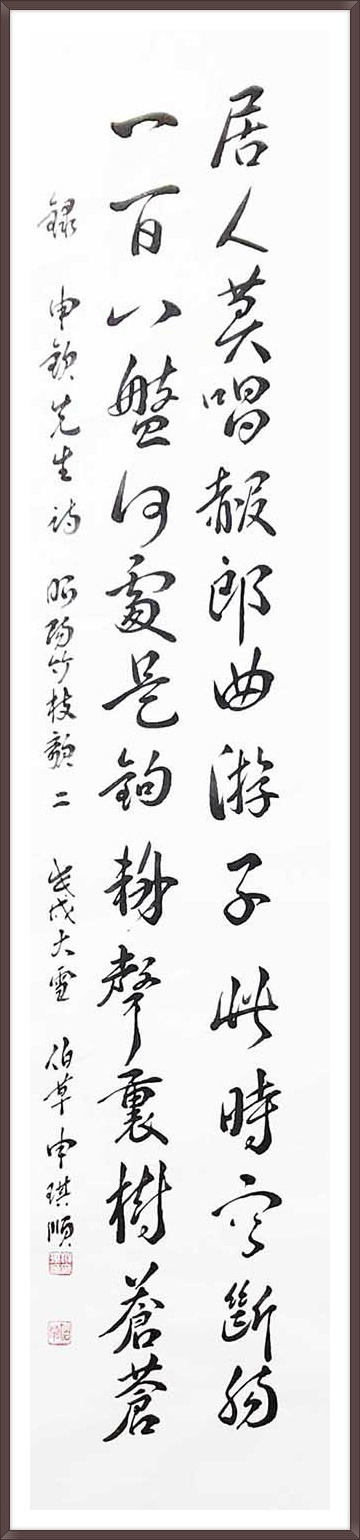 居人莫唱赧郎曲游子此時空斷腸
一百八盤何處是鉤輈聲裏樹蒼蒼
錄 申欽先生詩 昭陽竹枝歌二 戊戌大雪 伯草申琪順